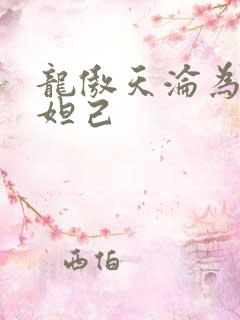 龍傲天淪為
妲己
西伯